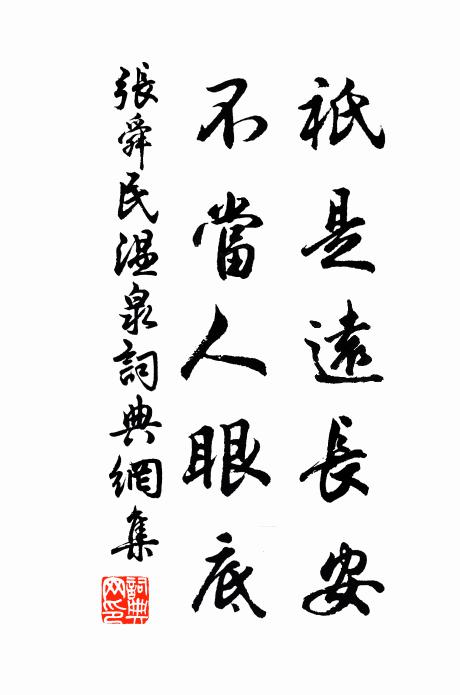 祇是遠長安
不當人眼底
張舜民溫泉詞典網集
詞典網印